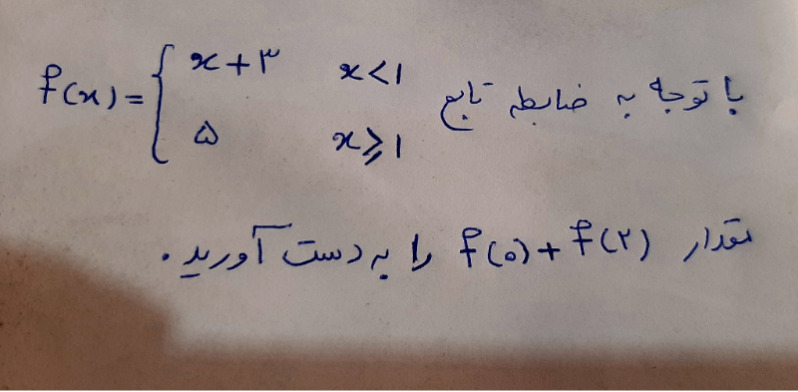 با توجه به ضابطه تابع f(x) = { x+۳ x<۱
۵ x⩾۱
مقدار f(۰)+f(۲) را به دست آورید.